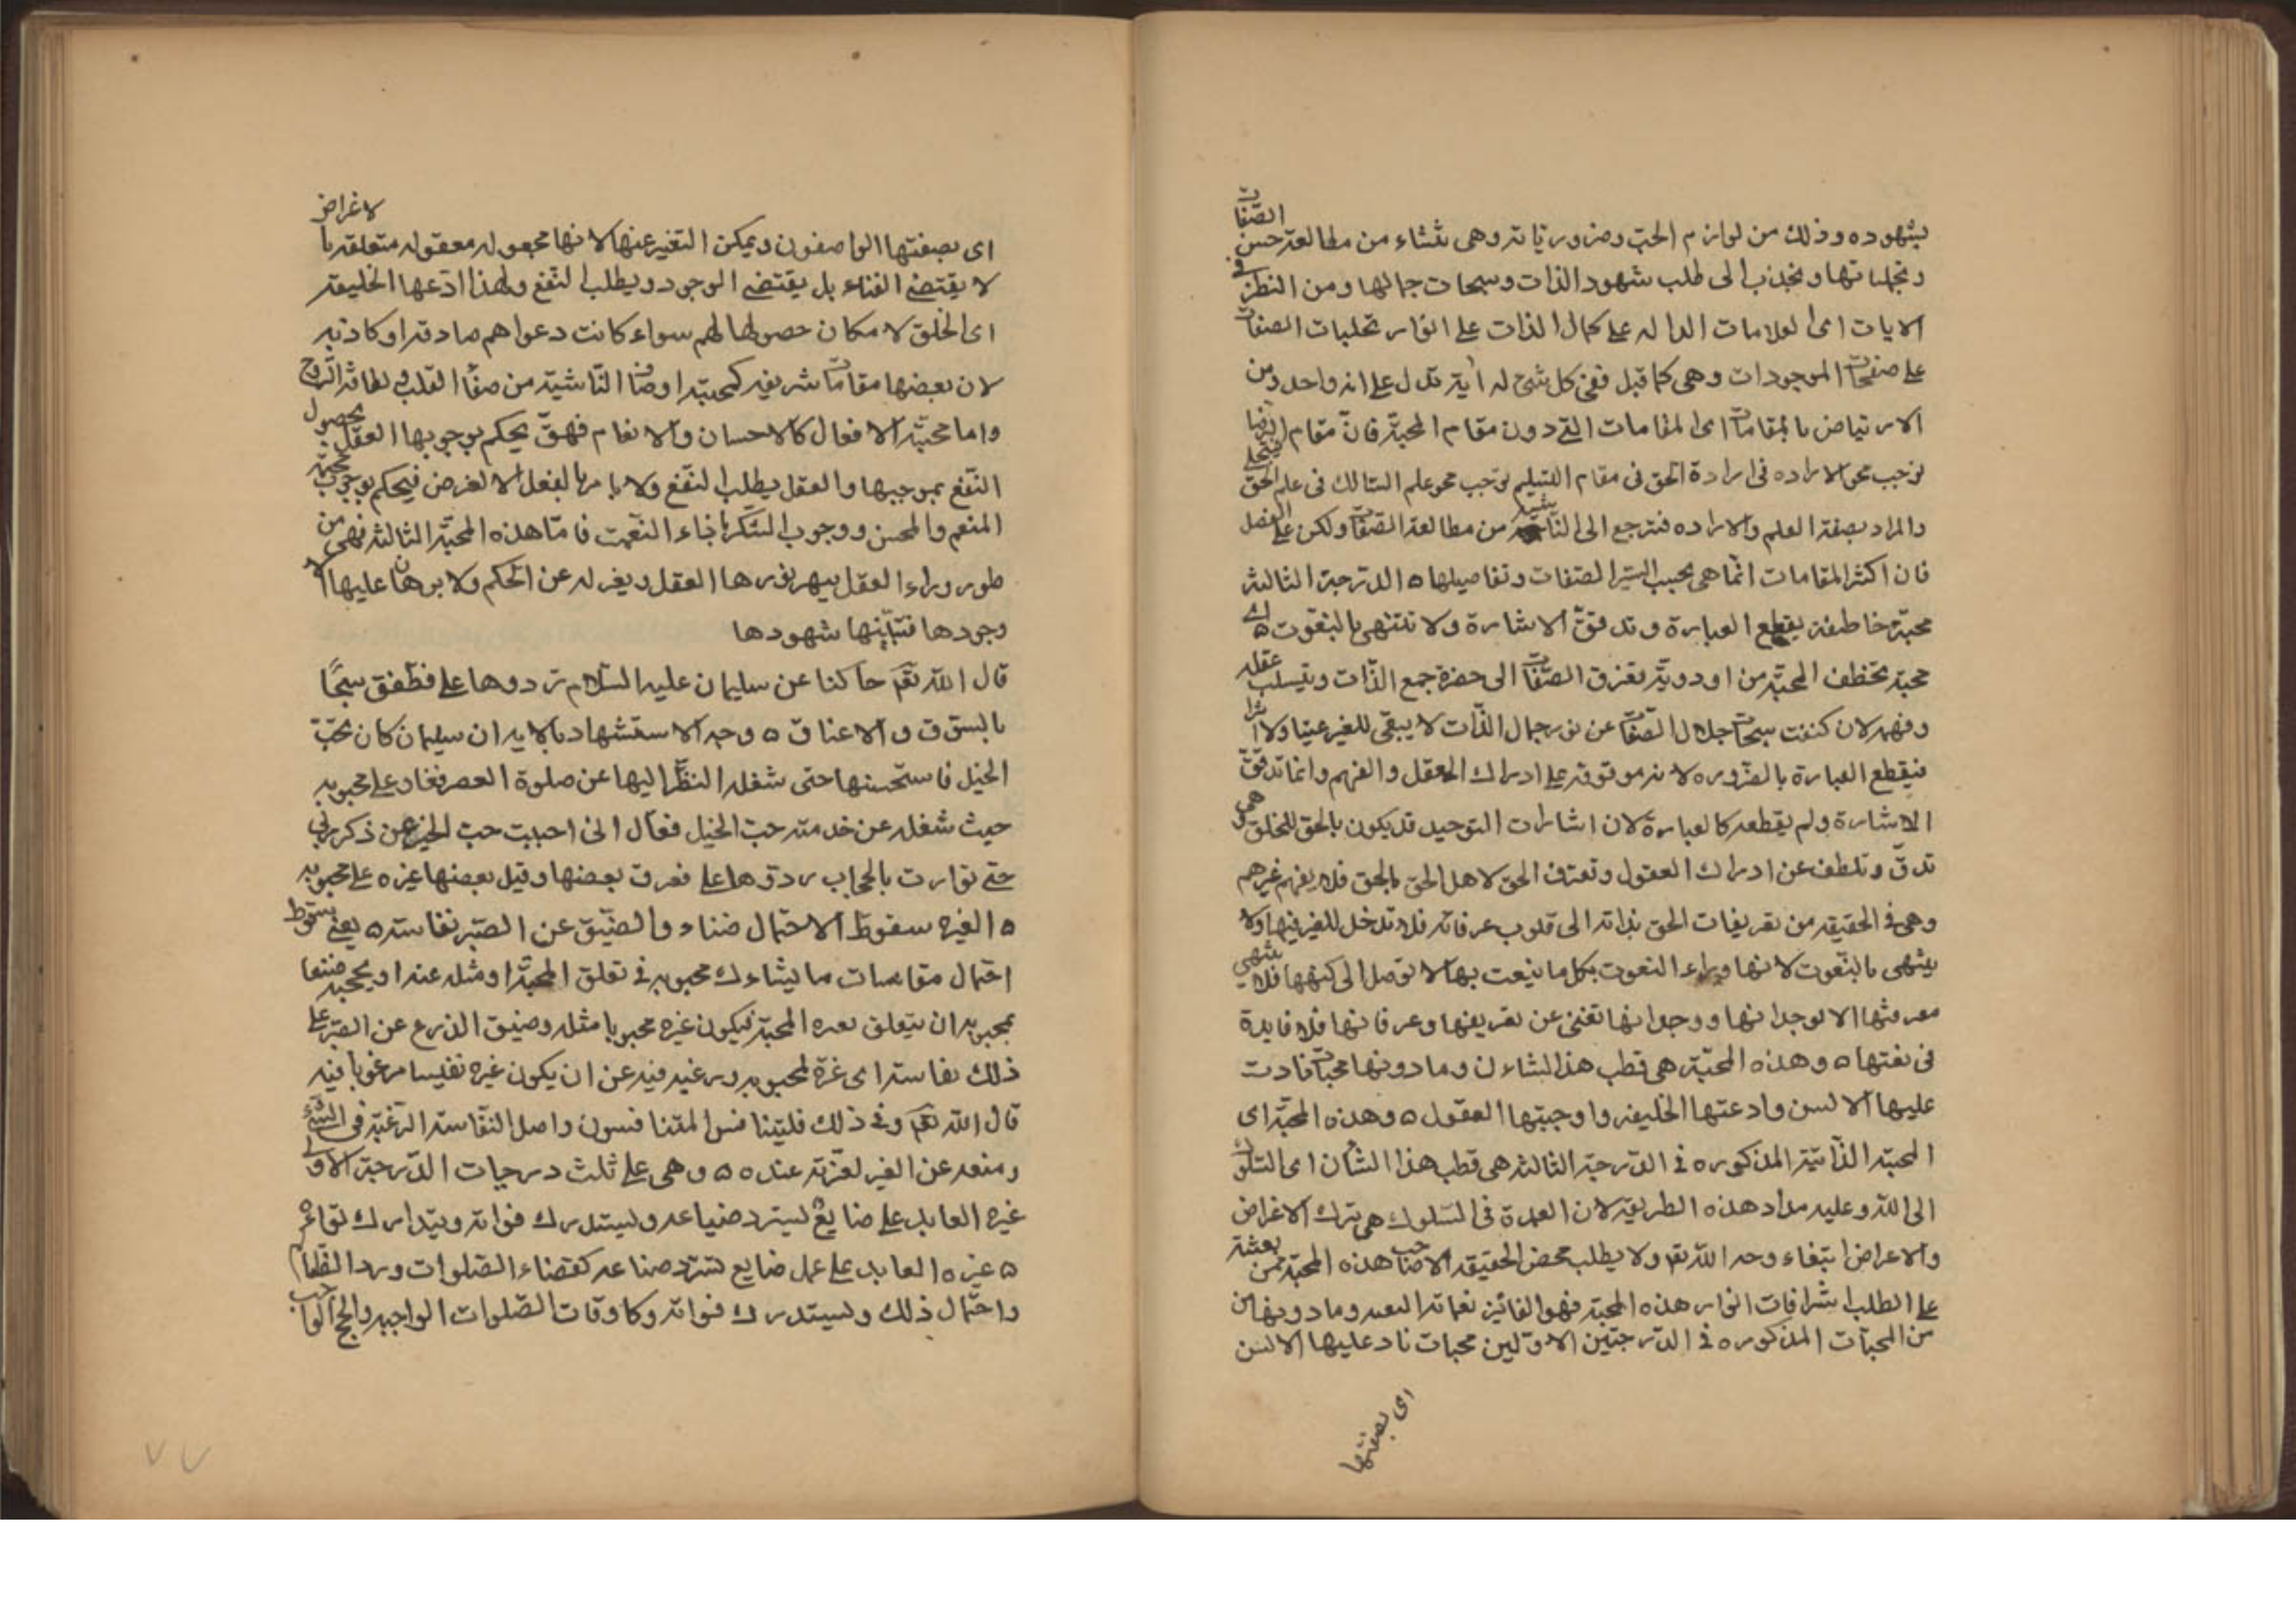 بشهوده وذلك من لوازم الحبّ وضروريّاته وهى تنشاء من مطالعة حسن الصّفات
وتجلياتها وتجذب الى طلب شهود الذات وسبحات جمالها ومن النظر فى
الايات اى العلامات الدالة على كمال الذات على انوار تجليات الصفات
على صفحات الموجودات وهى كما قيل ففى كل شئ له أية تدل على انه واحد ومن
الارتياض بالمقامات اى المقامات التى دون مقام المحبّة فانّ مقام الرضا
توجب محو الاراده فى ارادة الحق فى مقام التسليم توجب محو علم السالك فى علم الحق
والمراد بصفة العلم والارادة فترجع الى الناشية من مطالعة الصّفات ولكن على الفصل
فان اكثر المقامات انّما هى بحسب السير الصّفات وتفاصيلها ه الدّرجة الثالثة
محبّة خاطفة يقطع العبارة وتدقق الاشارة ولا تنتهى بالنعوت ه اى
محبة تخطف المحبّ من اودوية تفرق الصّفات الى حضرة جمع الذّات وتسلب عقله
وفهمه لان كشفت سبحات جلال الصّفات عن نور جمال الذّات لا يبقى للغير عينا ولا اثرا
فيقطع العبارة بالضّروره لانه موقوفه على ادراك العقل والفهم وانما تدقّق
الاشارة ولم يقطعه كالعبارة لان اشارات التوحيد قد يكون بالحق للخلق هى
تدقّ وتلطف عن ادراك العقول وتعترف الحق لاهل الحق بالحق فلا يفهم غيرهم
وهى فى الحقيقه من تعريفات الحق بذاته الى قلوب عرفائه فلا تدخل للغير فيها ولا
ينتهى بالنّعوت لانها وراء النعوت بكل ما ينعت بها لا توصل الى كنهها فلا ينتهى
معرفتها الا لوجدانها ووجدانها تغنى عن تعريفها وعرفانها فلا فايدة
فى نعتها ه وهذه المحبّة هى قطب هذا الشاءن وما دونها محبّات نادت
عليها الالسن وادعتها الخليفه واوجبتها العقول ه وهذه المحبّة اى
المحبّة الذّاتيّة المذكوره فى الدّرجة الثالثة هى قطب هذا الشأن اى السّلوك
الى الله وعليه مدار هذه الطريقه لان العمدة فى السّلوك هى ترك الاغراض
والاعراض ابتغاء وجه الله تع ولا يطلب محض الحقيقة الا صاحب هذه المحبّة فمن بعثته
على الطلب اشراقات انوار هذه المحبّة فهو الفائز وما دونها من
من المحبّات المذكوره فى الدّرجتين الاوّلين محبات ناد عليها الالسن
اى بصفتها
اى بصفتها الواصفون ويمكن التغير عنها لانها مجعوله معقوله متعلقه با لاغراض
لا يقتضى الفناء بل يقتضى الوجود ويطلب النّفع ولهذا ادّعها الخليقة
اى الخلق لامكان حصولها لهم سواء كانت دعواهم صادقه او كاذبه
لان بعضها مقامات شريفه كمحبّة اوصاف النّاشية من صفا القلب ولطافة الرّوح
واما محبّة الافعال كالاحسان والانعام فهوّ يحكم بوجوبها العقل بحصول
النّفع بموجبها والعقل يطلب النّفع ولا يامر بالفعل الا لغرض فيحكم بوجوب محبّة
المنعم والمحسن ووجوب الشّكر باذاء النعمت فامّا هذه المحبّة الثالثه فهى من
طور وراء العقل يبهر نورها العقل ويعزله عن الحكم ولا برهان عليها الا
وجودها فتبايّنها شهودها
قال الله تع حاكنا عن سليمان عليه السّلام ردوها على فطفق سحًا
بالسّوق والاعناق ه وجه الاستشهاد بالايه ان سليمان كان يحبّ
الخيل فاستحسنها حتى شغله النظر اليها عن صلوة العصر فغار على محبوبه
حيث شغله عن خدمته حبّ الخيل فعال انى احببت حبّ الخير عن ذكر ربّى
حتّى توارت بالحجاب ردّوها على فعرق بعضها وقيل بعضها غيره على محبوبه
ه الغيره سقوط الاحتمال ضناء والضّيق عن الصّبر نفاسته ه يعنى سقوط
احتمال مقاسات ما يشاءك محبوبه فى تعلق المحبّة او مثله عنه او يحبّه ضنّا
بمحبوبه ان يتعلق بغيره المحبّة فيكون غيره محبوبا مثله وضيق الذرع عن الصّبر على
ذلك نفاسته اى غرّة لمحبوبه ورغبه فيه عن ان يكون غيره نفيسا مرغوبا فيه
قال الله تع وفى ذلك فليتنافس المتنافسون واصل النّفاسة الرّغبة فى الشئ
ومنعه عن الغير لعزّته عنده ه ه وهى على ثلث درجات الدّرجة الاولى
غيره العابد على ضايع ليسترد ضياعه ويستدرك فواته ويتدارك قواه
ه غيره العابد على عمل ضايع يسترد ضاعه كقضاء الصّلوات وردّ المظالم
واحتمال ذلك ويستدرك فواته وكاوقات الصّلوات الواجبه والحجّ الواجب
٧٧